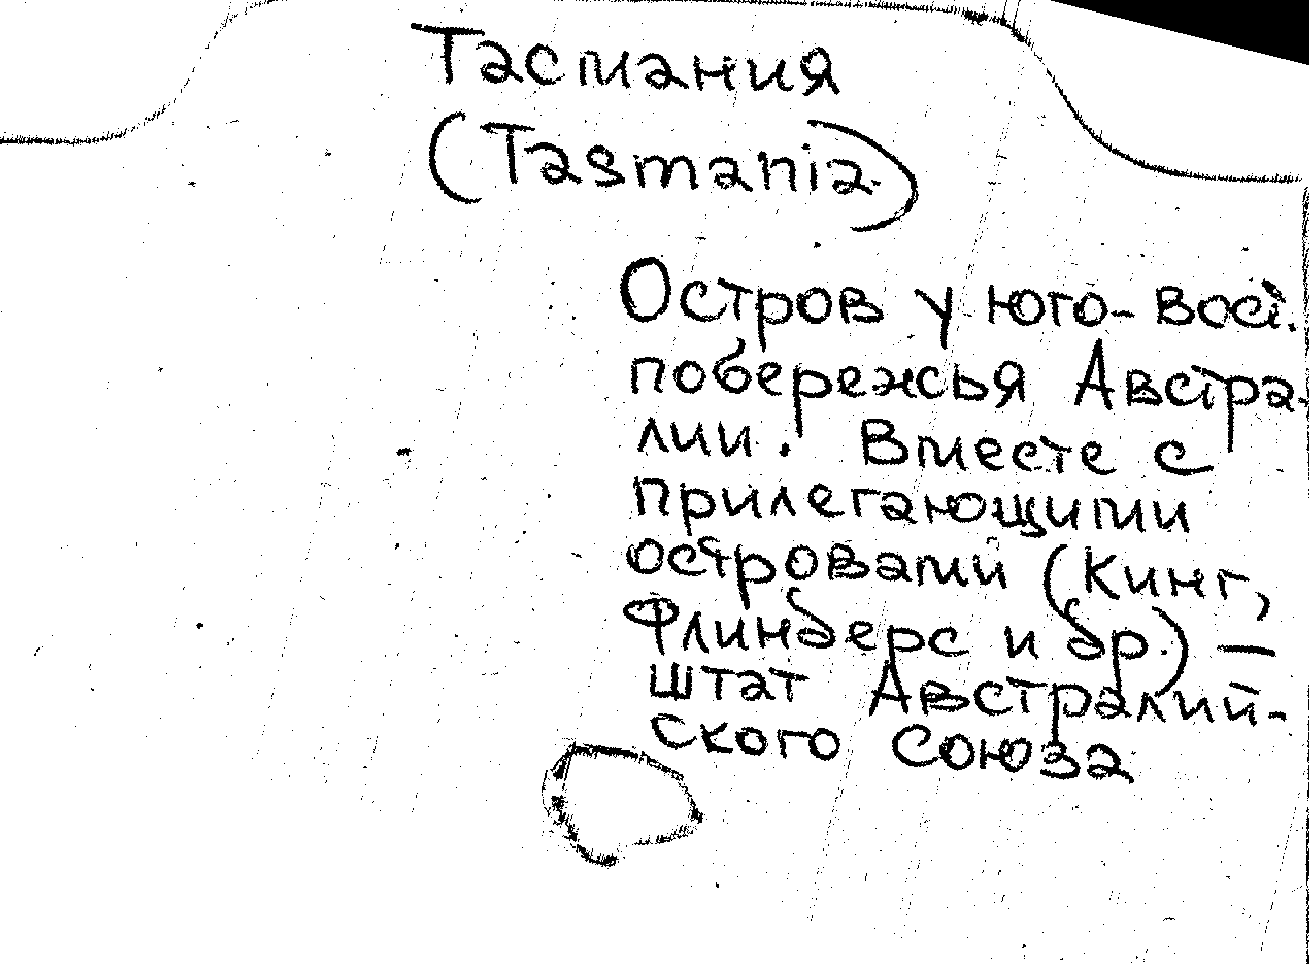 Тасмания
(Tasmania)
Остров у юго-вост.
побережья Австра-
лии. Вместе с
прилегающими
островами (Кинг,
Флиндерс и др.) —
штат Австралий-
ского Союза